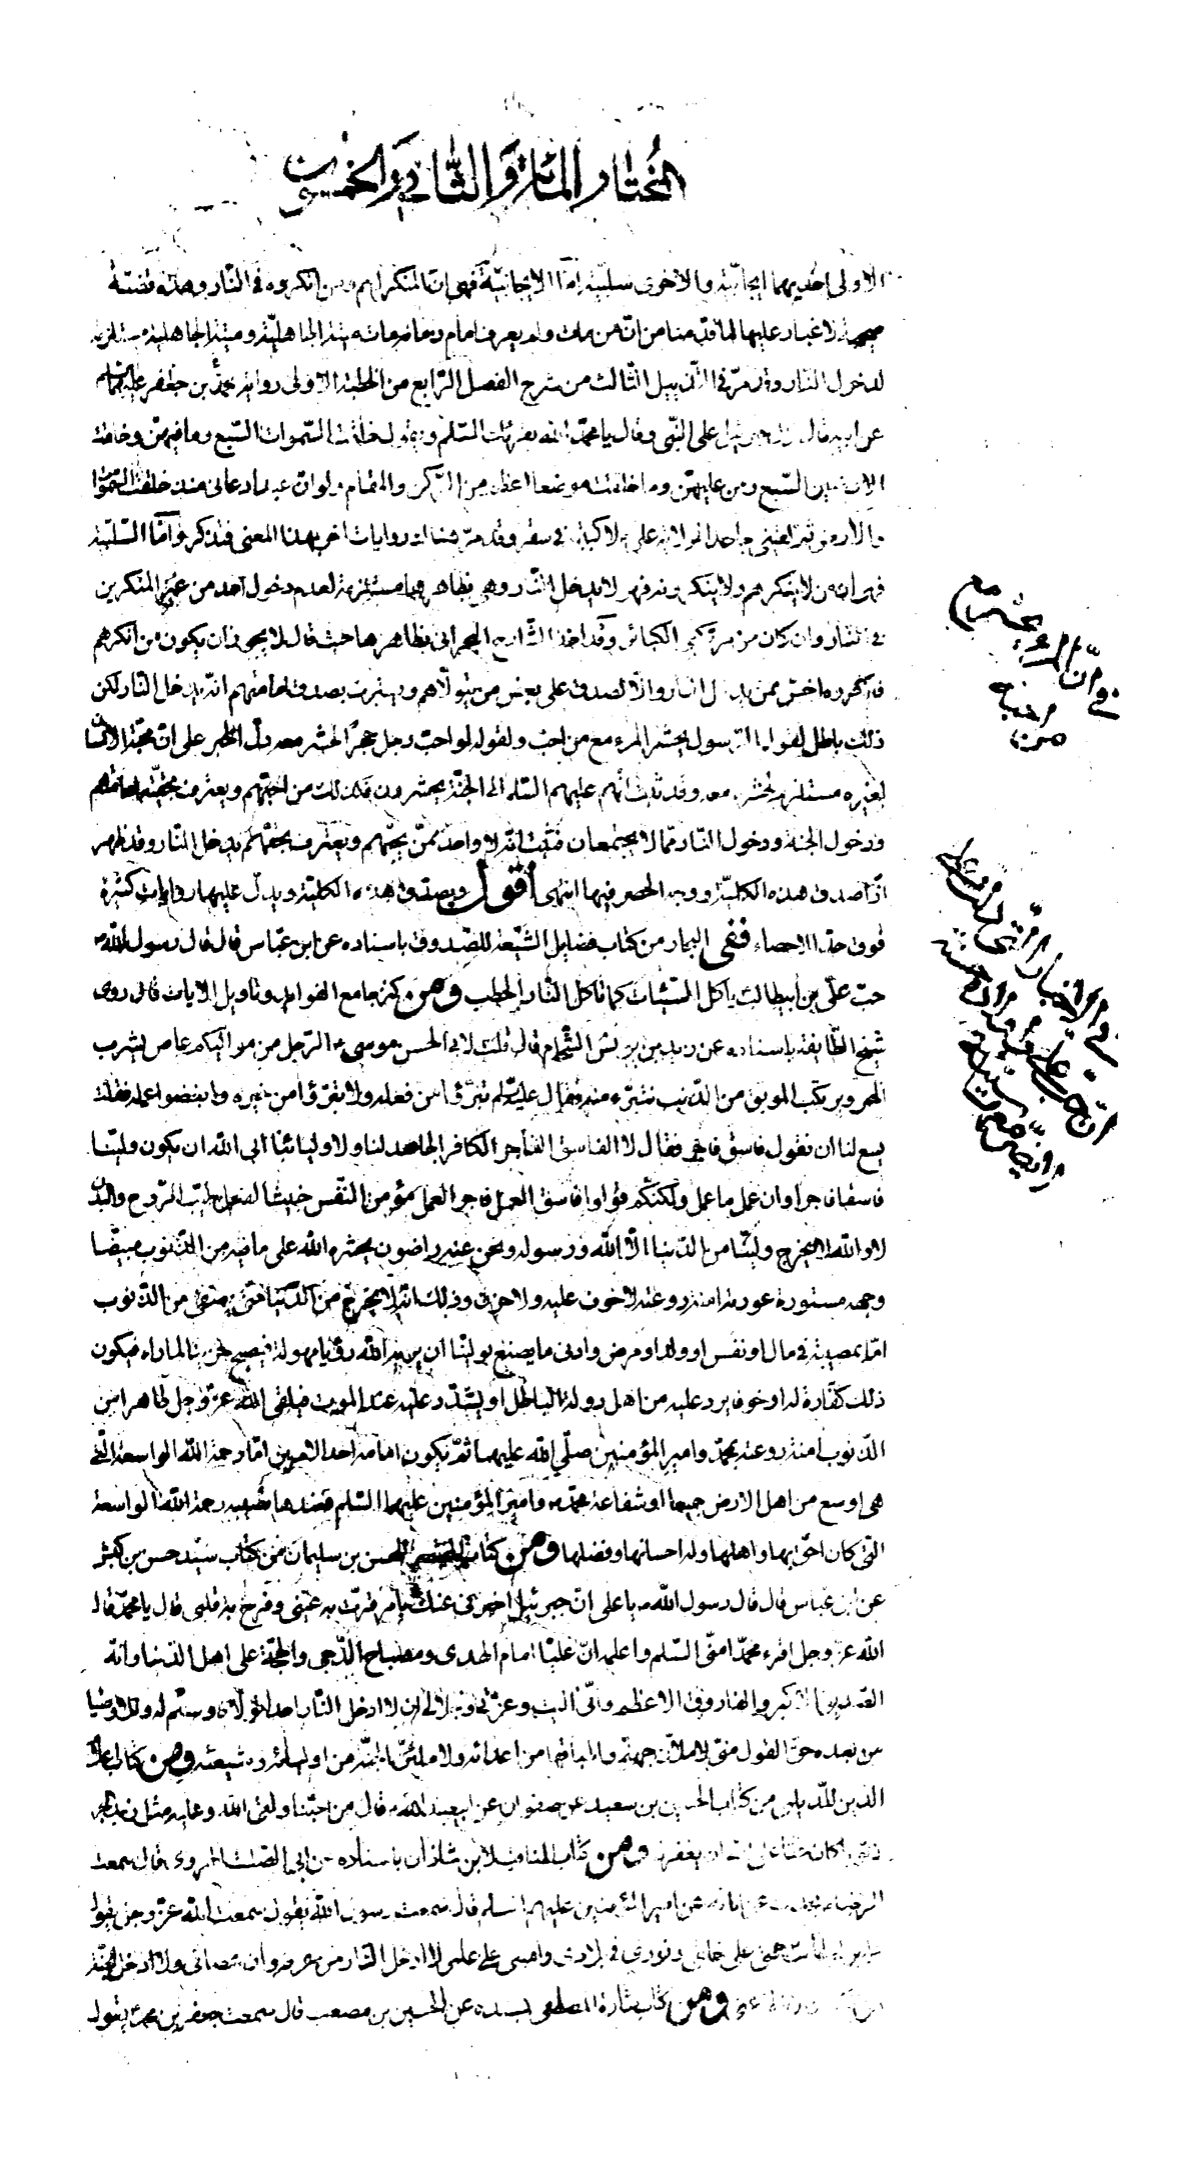 المختار المائة والثاني والخمسين
الاولى احديهما ايجابيّة والاخرى سلبيّة امّا الايجابيّة فهي انّ المنكر لهم ومن انكروه في النّار وهذه قضيّة
صحيحة لا غبار عليها لما قدّمنا من انّ من مات ولم يعرف امام زمانه مات ميتة الجاهليّة وميتة الجاهلية مستلزمة
لدخول النار وقد مرّ في التّذييل الثّالث من شرح الفصل الرّابع من الخطبة الاولى رواية محمّد بن جعفر عليهما السّلم
عن ابيه قال نزل جبرئيل على النّبي وقال يا محمّد الله يقرئك السّلم ويقول خلقت السّموات السّبع وما فيهنّ وخلقت
الارضين السّبع ومن عليهنّ وما خلقت موضعا اعظم من الرّكن والمقام ولو انّ عبدا دعاني منذ خلقت السّموات
والارض ثم لقيني جاحدا لولاية علي لاكببته في سقر وقد مرّ هناك روايات اخر بهذا المعنى فتذكر وامّا السّلبيّة
فهي انّ من لا ينكرهم ولا ينكرونه فهو لا يدخل النّار وهي بظاهرها مستلزمة لعدم دخول احد من غير المنكرين
في النّار وان كان من مرتكبي الكبائر وقد اخذ الشّارح البحراني بظاهرها حيث قال لا يجوز ان يكون من انكرهم
فانكروه اخصّ ممن يدخل النار والّا لصدق على بعض من يتولّاهم ويعترف بصدق امامتهم انّه يدخل النّار لكن
ذلك باطل لقول الرّسول يحشر المرء مع من احبّ ولقوله لو احبّ رجل حجرا لحشر معه دلّ الخبر على انّ محبّة الانسان
لغيره مستلزمة لحشره معه وقد ثبت انّهم عليهم السّلم الى الجنّة يحشرون فكذلك من احبّهم ويعترف بحقّيّة امامتهم
ودخول الجنة ودخول النّار ممّا لا يجتمعان فثبت انّه لا واحد ممّن يحبّهم ويعترف بحقّهم يدخل النّار وقد ظهر
اذًا صدق هذه الكليّة ووجه الحصر فيها انتهى اقول ويصدّق هذه الكليّة ويدلّ عليها روايات كثيرة
فوق حدّ الاحصاء ففي البحار من كتاب فضايل الشّيعة للصّدوق باسناده عن ابن عبّاس قال قال رسول الله ص
حبّ علّي بن ابيطالب ياكل السّيئات كما تاكل النّار الحطب ومن كنز جامع الفوايد وتاويل الايات قال روى
شيخ الطّايفة باسناده عن زيد بن يونس الشّحّام قال قلت لابي الحسن موسى ع الرّجل من مواليكم عاص يشرب
الخمر ويرتكب الموبق من الذّنب نتبرّء منه فقال ع تبرّؤا من فعله ولا تبرّؤا من خيره وابغضوا عمله فقلت
يسع لنا ان نقول فاسق فاجر فقال لا الفاسق الفاجر الكافر الجاحد لنا ولاوليائنا ابى الله ان يكون وليّنا
فاسقا فاجرا وان عمل ما عمل ولكنّكم قولوا فاسق العمل فاجر العمل مؤمن النّفس خبيث الفعل طيّب الرّوح والبدن
لا والله لا يخرج وليّنا من الدّنيا الّا والله ورسوله ونحن عنه راضون يحشره الله على ما فيه من الذّنوب مبيضّا
وجهه مستورة عورته امنة روعته لا خوف عليه ولا حزن وذلك انّه لا يخرج من الدّنيا حتّى يصفى من الذّنوب
امّا بمصيبة في مال او نفس او ولد او مرض وادنى ما يصنع بوليّنا ان يريه الله رؤيا مهولة فيصبح حزينا لما راه فيكون
ذلك كفّارة له او خوفا يرد عليه من اهل دولة الباطل او يشدّد عليه عند الموت فيلقى الله عزّ وجل طاهرا من
الذّنوب امنة روعته بمحمّد وامير المؤمنين صلّى الله عليهما ثمّ يكون امامه احد الامرين امّا رحمة الله الواسعة الّتي
هي اوسع من اهل الارض جميعا او شفاعة محمّد ص وامير المؤمنين عليهما السّلم فعندها تصيبه رحمة الله الواسعة
التي كان احقّ بها واهلها وله احسانها وفضلها ومن كتاب المحتضر للحسن بن سليمان من كتاب سيّد حسن بن كبش
عن ابن عبّاس قال قال رسول الله ص يا على انّ جبرئيل اخبرني عنك بامر قرّت به عيني وفرح به قلبي قال يا محمّد قال
الله عزّ وجل اقرء محمّدا منّي السّلم واعلمه انّ عليّا امام الهدى ومصباح الدّجى والحجّة على اهل الدّنيا وانّه
الصّديق الاكبر والفاروق الاعظم وانّي اليت وعزّتي وجلالي ان لا ادخل النّار احدا تولّاه وسلّم له وللاوصيا
من بعده حقّ القول منّي لاملانّ جهنّم واطباقها من اعدائه ولاملئنّ الجنّة من اوليائه وشيعته ومن كتاب اعلام
الدين للدّيلمى من كتاب الحسين بن سعيد عن صفوان عن ابيعبد الله ع قال من احبّنا ولقى الله وعليه مثل زبد البحر
ذنوبا كان حقّا على الله ان يغفر له ومن كتاب المناقب لابن شاذان باسناده عن ابى الصّلت الهروى قال سمعت
الرضا ع يحدث عن ابائه عن امير المؤمنين عليهم السلم قال سمعت رسول الله يقول سمعت الله عزّ وجل يقول
على بن ابيطالب حجتي على خلقي ونوري في بلادى واميني على علمى لا ادخل النّار من عرفه وان عصاني ولا ادخل الجنّة
من انكره وان اطاعني ومن كتاب بشارة المصطفى بسنده عن الحسين بن مصعب قال سمعت جعفر بن محمّد يقول
في انّ المرء يحشر مع
من احبّه
في الاخبار الّتي
انّ حبّ علي